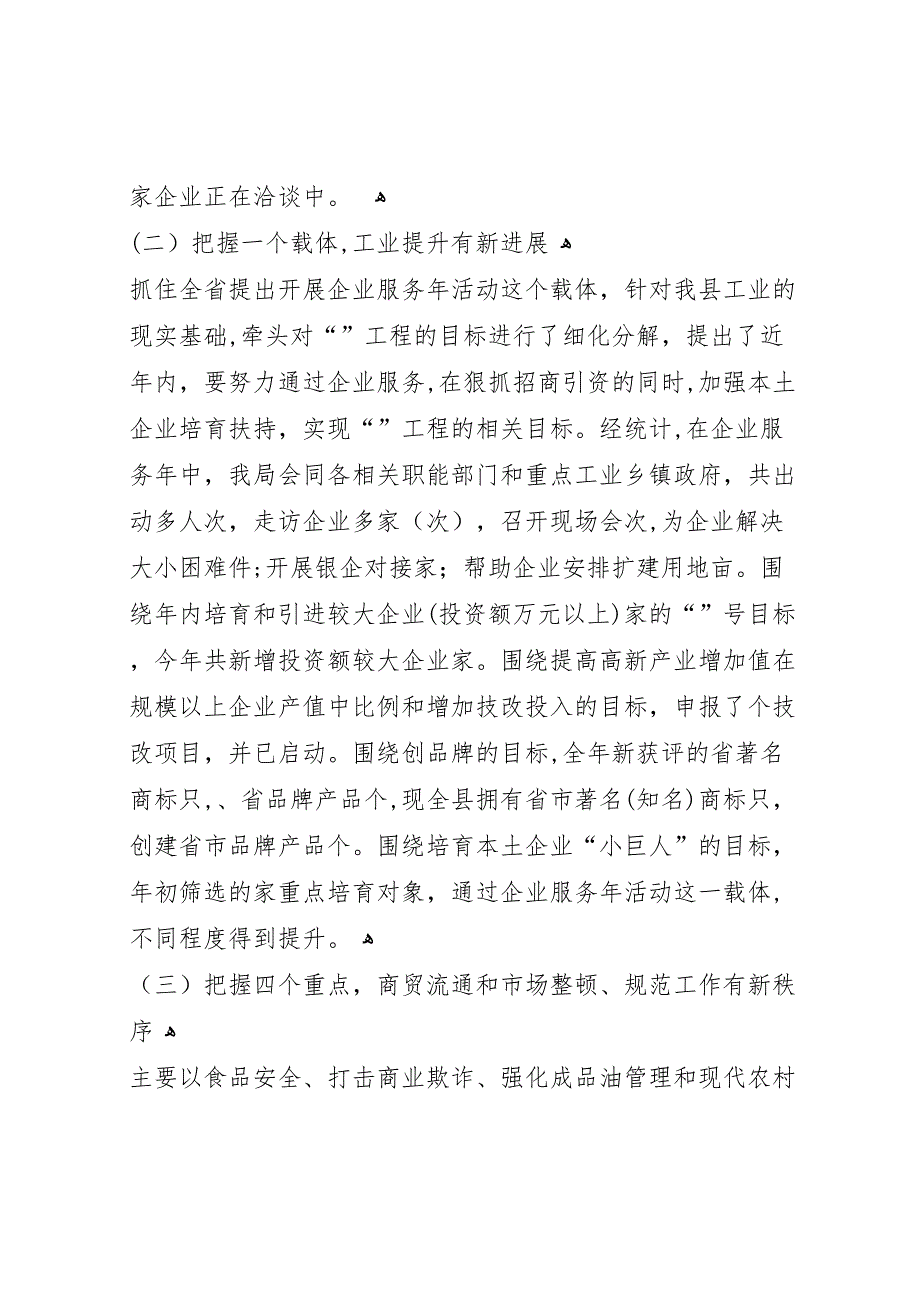 家企业正在洽谈中。 ﻫ
(二）把握一个载体,工业提升有新进展 ﻫ
抓住全省提出开展企业服务年活动这个载体，针对我县工业的
现实基础,牵头对“”工程的目标进行了细化分解，提出了近
年内，要努力通过企业服务,在狠抓招商引资的同时,加强本土
企业培育扶持，实现“”工程的相关目标。经统计,在企业服
务年中，我局会同各相关职能部门和重点工业乡镇政府，共出
动多人次，走访企业多家（次），召开现场会次,为企业解决
大小困难件;开展银企对接家；帮助企业安排扩建用地亩。围
绕年内培育和引进较大企业(投资额万元以上)家的“”号目标
，今年共新增投资额较大企业家。围绕提高高新产业增加值在
规模以上企业产值中比例和增加技改投入的目标，申报了个技
改项目，并已启动。围绕创品牌的目标,全年新获评的省著名
商标只,、省品牌产品个,现全县拥有省市著名(知名)商标只，
创建省市品牌产品个。围绕培育本土企业“小巨人”的目标，
年初筛选的家重点培育对象，通过企业服务年活动这一载体,
不同程度得到提升。 ﻫ
（三）把握四个重点，商贸流通和市场整顿、规范工作有新秩
序 ﻫ
主要以食品安全、打击商业欺诈、强化成品油管理和现代农村